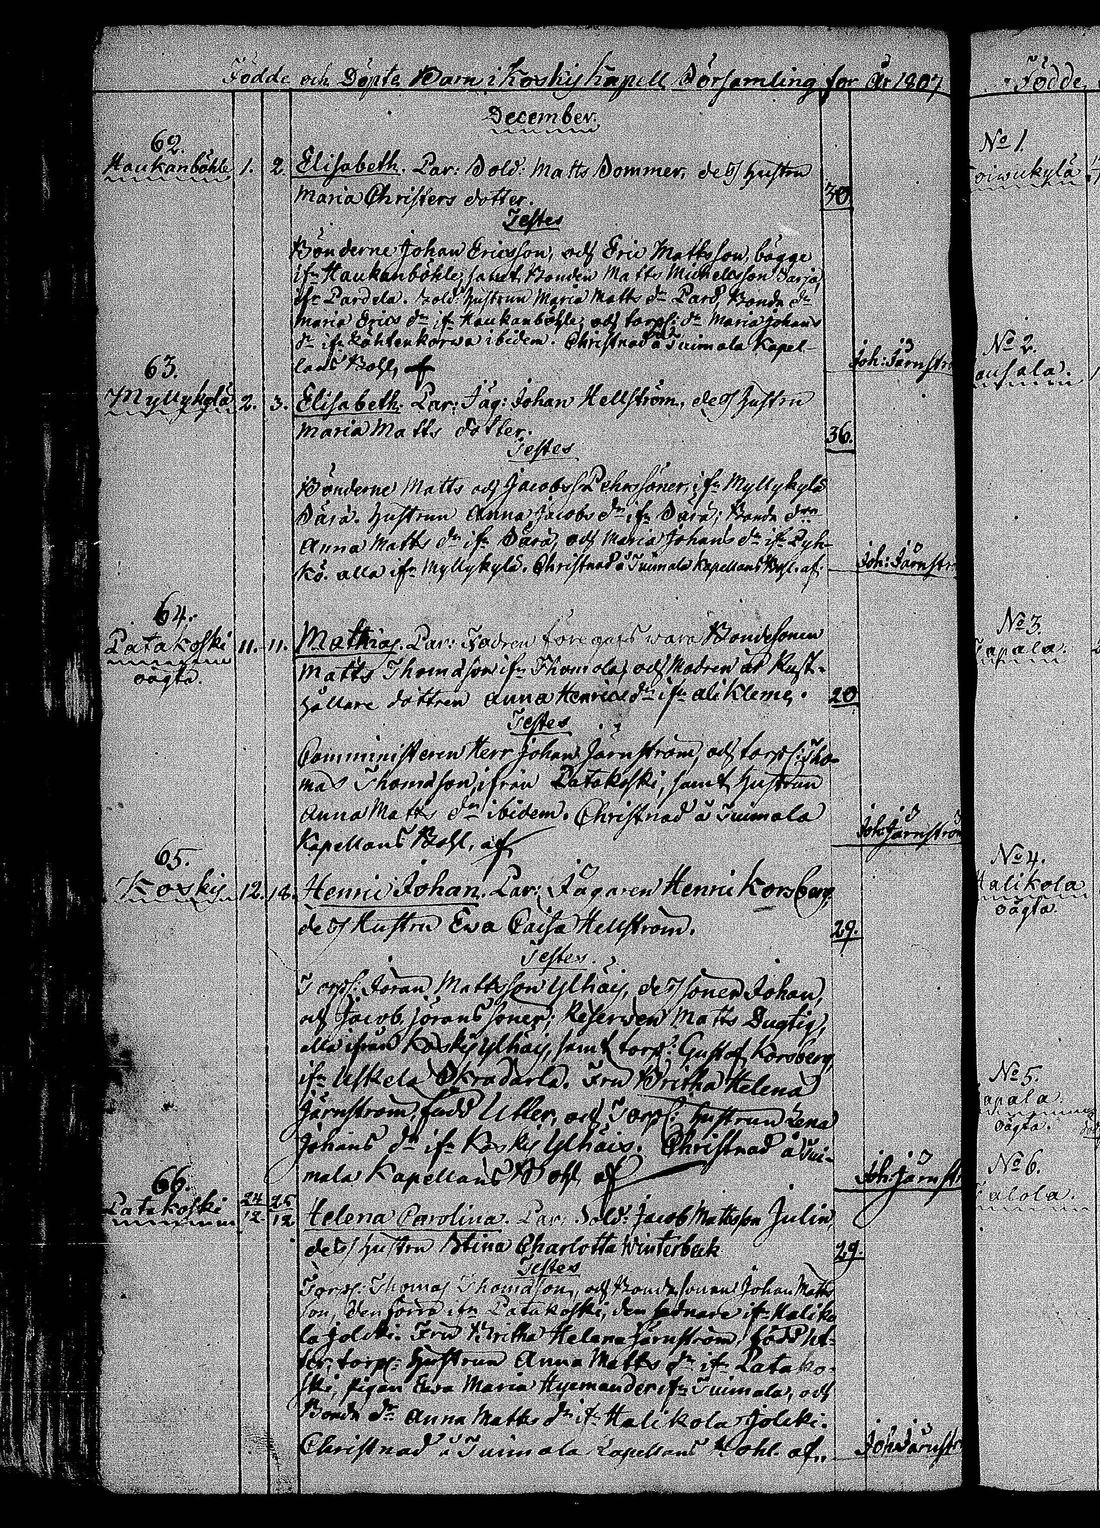 Födde och Döpte Barn i Koskis Kapell Församling för År 1807
December.
62.
Haukanböhle 1. 2. Elisabeth. Par: Sold: Matts Sommer, dess Hustru
Maria Christers dotter. 30
Testes
Bönderne Johan Ericsson, och Eric Mattsson, bägge
ifn Haukanböhle, samt Bonden Matts Michellsson
ifn Pardela. Sold: Hustrun Maria Matts dr Bonde dr
Maria Erics dr ifn Haukanböhle, och torp: dr Maria Johans
dr ifn ibidem. Christnad å Tuimala Kapel-
lans Bohl, af Joh: Järnström
63.
Myllykylä 2. 3. Elisabeth. Par: Jäg: Johan Hellström, dess Hustru
Maria Matts dotter. 36.
Testes
Bönderne Matts och Jacob Pehrssöner, ifn Myllykylä
Särä. Hustrun Anna Jacobs dr ifn Särä; Bonde drn
Anna Matts dr ifn Särä, och Maria Johans dr ifn Pyh-
kö. alla ifn Myllykylä. Christnad å Tuimala Kapellans Bohl. af Joh: Järnström
64.
Patakoski 11. 11. Mathias. Par: Fadren föregafs vara Bondesonen
oägta.
Matts Thomasson ifn Thomola, och Modren är Rust-
hållare dottren Anna Henrics dr ifn Alikleme. 20
Testes
Comministeren Herr Johan Järnström, och torp: Tho-
mas Thomasson, ifrån Patakoski, samt Hustrun
Anna Matts dr ibidem. Christnad å Tuimala
Kapellans Bohl, af Joh: Järnström
65.
Koskis 12. 18. Henric Johan. Par: Jägaren Henric Korsberg
dess Hustru Ewa Caisa Hellström. 29.
Testes.
Torp: Jöran Mattsson Ylhäis, dess Söner Johan,
och Jacob Jörans Söner; Reserven Matts Dugtig,
alla ifrån Koskis Ylhäis, samt torp: Gustaf Korsberg,
ifn Uskela Skradarla. Fru Britha Helena
Järnström, född Utter, och Torp: hustrun Lena
Johans dr ifn Koskis Ylhäis. Christnad å Tui-
mala Kapellans Bohl af Joh: Järnst
66.
Patakoski 24/12 25/12 Helena Carolina. Par: Sold: Jacob Mattsson Julin,
dess Hustru Stina Charlotta Winterbeck 29.
Testes
Torp: Thomas Thomasson, och Bondesonen Johan Matts
son, den förre ifn Patakoski, den sednare ifn Haliko
la Jolcki. Fru Britha Helena Järnström, född Ut-
ter, torp: Hustrun Anna Matts dr ifn Patako-
ski, pigan Ewa Maria ifn Tuimala, och
Bonde dr Anna Matts dr ifn Halikola Jolcki.
Christnad å Tuimala Kapellans Bohl. af Joh Järnst
Födde
No 1.
No 2.
No 3.
Tapala.
No 4.
Halikola
oägta.
No 5.
apala.
oägta.
No 6.
alola.